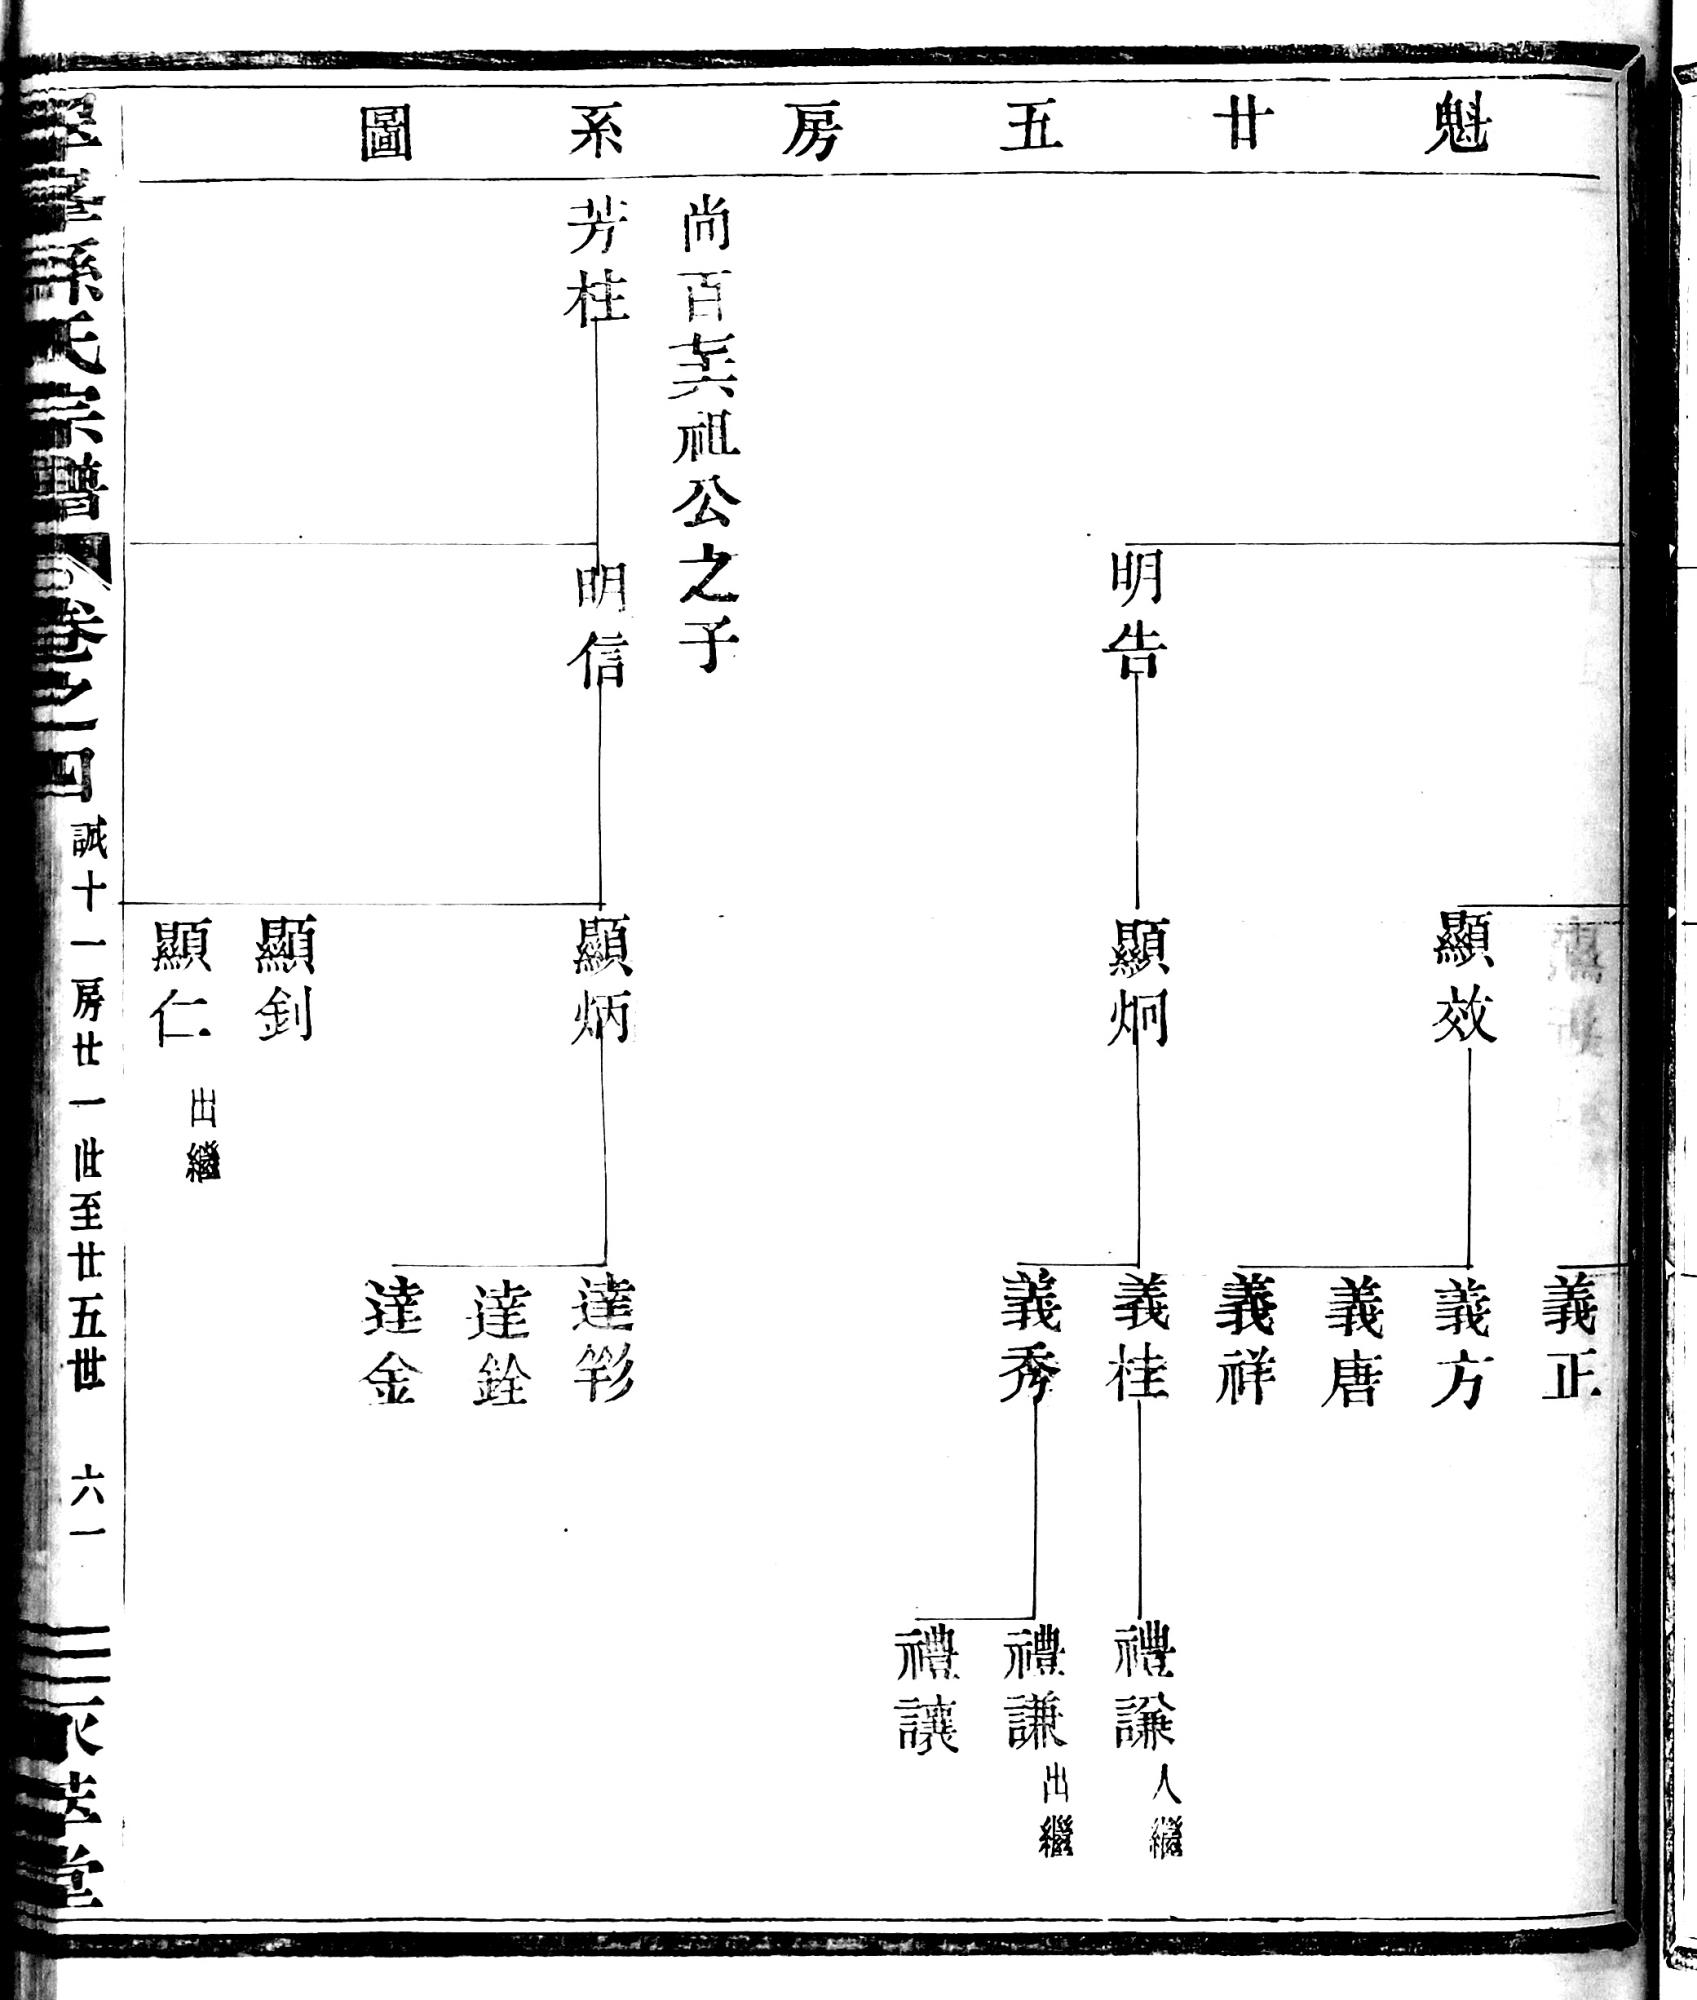 魁廿五房系圖
義正
顯效
義方
義唐
義祥
明告
顯炯
義桂
禮謙
人繼
義秀
禮謙
出繼
禮讓
尚百 祖公之子
芳柱
明信
顯炳
達
達銓
達金
顯釗
顯仁
出繼
孫氏宗譜
卷之四
誠十一房廿一世至廿五世
六一
堂